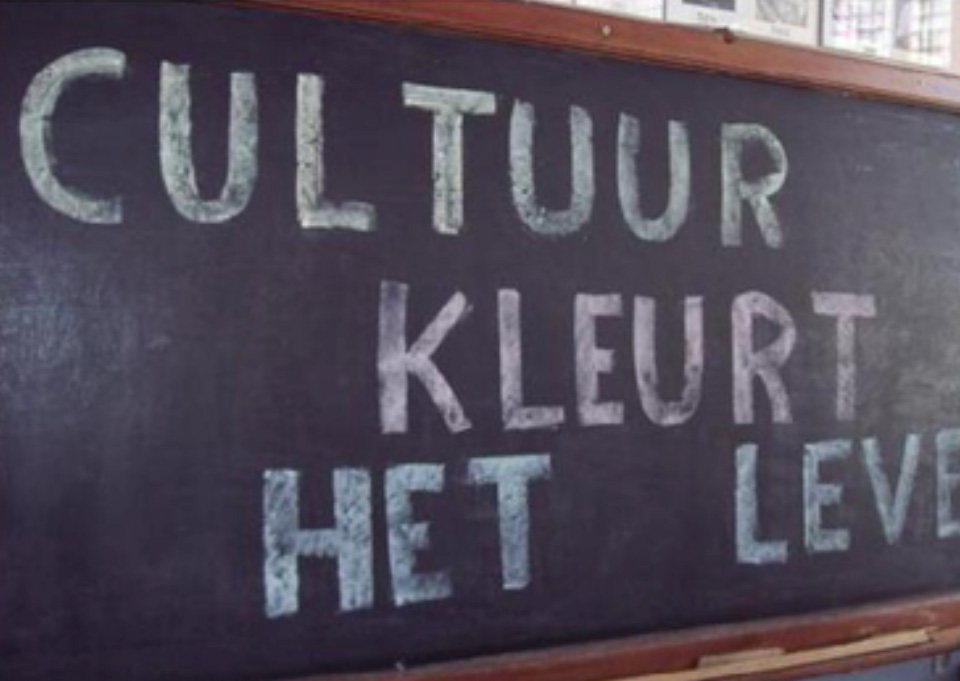 CULTUUR
KLEURT
HET LEVE